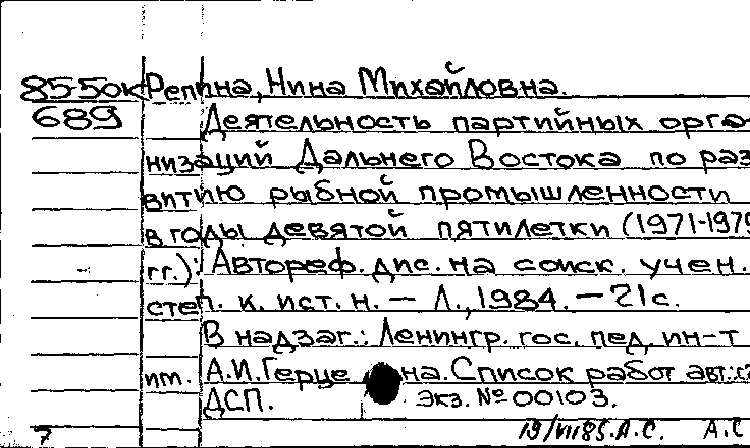 85-50к Репина, Нина Михайловна.
689 Деятельность партийных орга-
низаций Дальнего Востока по раз
витию рыбной промышленности
в годы девятой пятилетки (1971-1975
гг.): Автореф. дис. на соиск. учен.
степ. к. ист. н. — Л., 1984. — 21 с.
В надзаг.: Ленингр. гос. пед. ин-т
им. А.И. Герце на. Список работ авт.:
ДСП. Экз. № 00103.
7 19/VII85. А.С. А.С